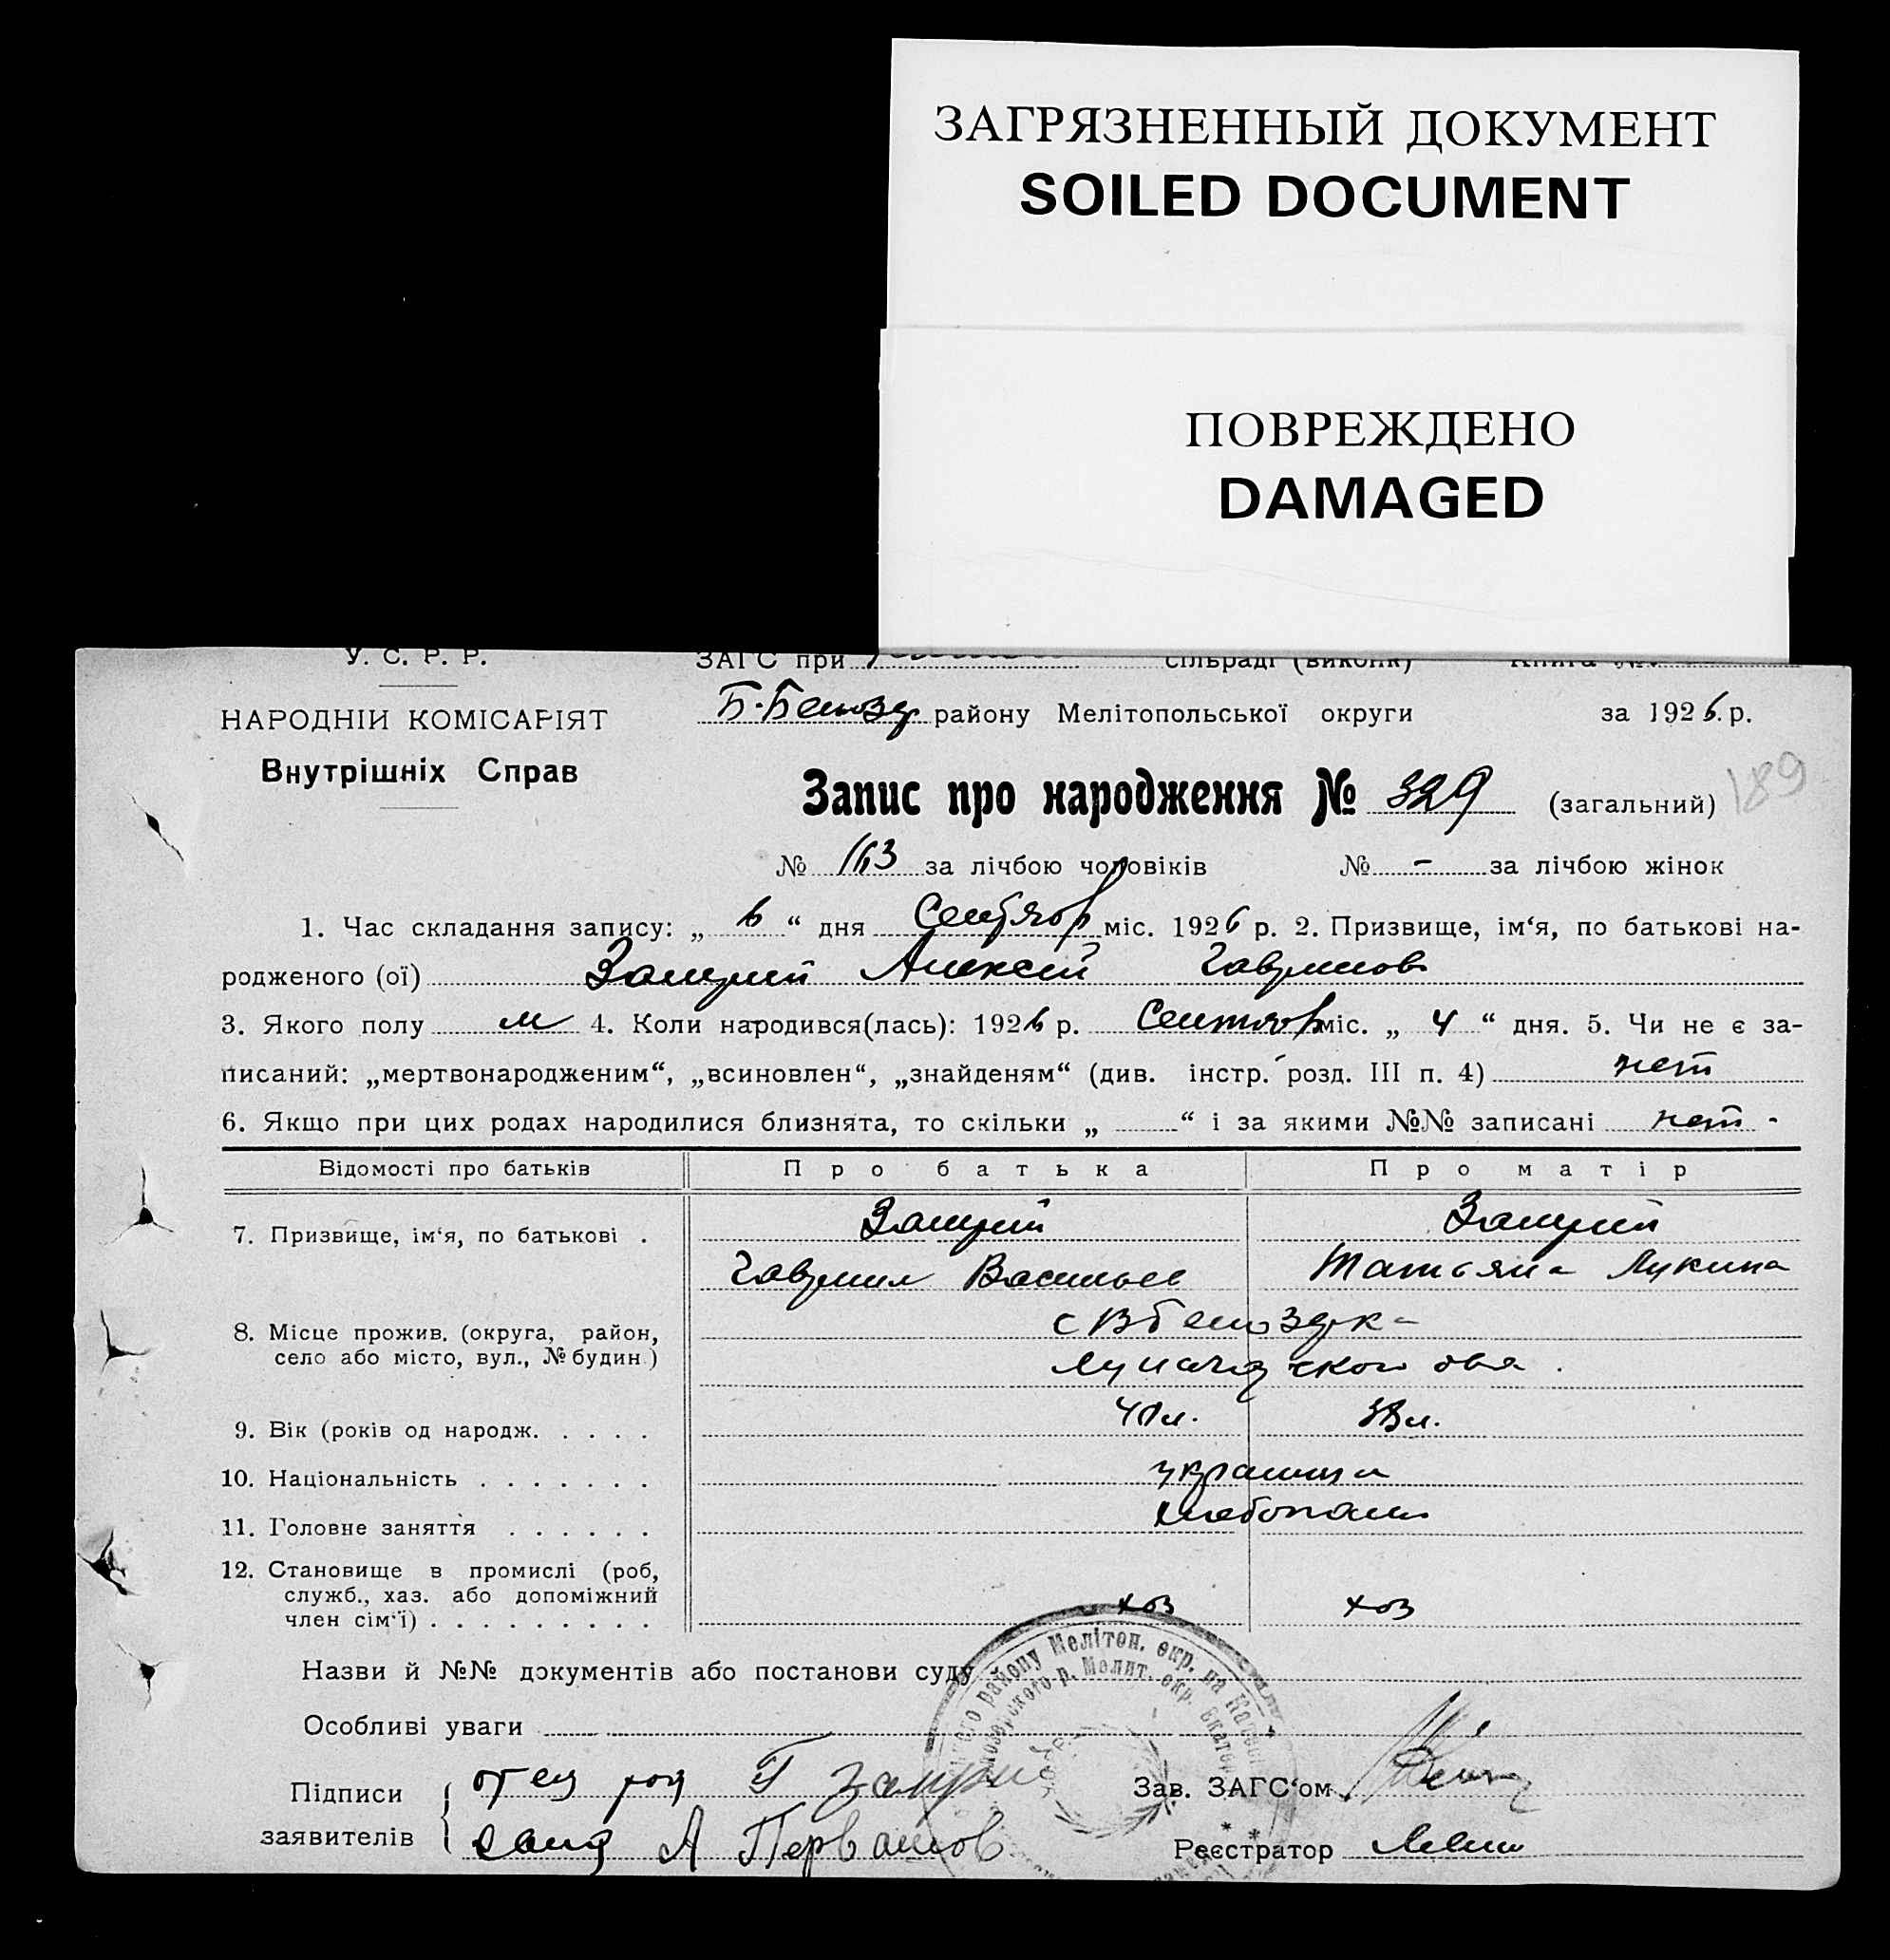 ЗАГРЯЗНЕННЫЙ ДОКУМЕНТ
SOILED DOCUMENT
ПОВРЕЖДЕНО
DAMAGED
У. С. Р. Р.
ЗАГС при сільраді (виконк) Книга №
НАРОДНІЙ КОМІСАРІЯТ
Внутрішніх Справ
Б-Белозер району Мелітопольської округи за 1926 р.
Запис про народження № 329 (загальний) 189
№ 163 за лічбою чоловіків № - за лічбою жінок
1. Час складання запису: „ 6 “ дня Сентябр міс. 1926 р. 2. Призвище, ім‘я, по батькові на-
родженого (ої) Алексей Гаврилов
3. Якого полу м 4. Коли народився(лась): 1926 р. Сентябр міс. „ 4 “ дня. 5. Чи не є за-
писаний: „мертвонародженим“, „всиновлен“, „знайденям“ (див. інстр. розд. III п. 4) нет
6. Якщо при цих родах народилися близнята, то скільки „ “ і за якими №№ записані нет -
Відомості про батьків Про батька Про матір
7. Призвище, ім‘я, по батькові .
Гаврил Васильев Татьяна Лукина
8. Місце прожив. (округа, район,
село або місто, вул., № будин.)
9. Вік (років од народж. . . . . 40 л. 38 л.
10. Національність . . . . . . . украинцы
11. Головне заняття . . . . . . хлебопаш
12. Становище в промислі (роб,
служб., хаз. або допоміжний
член сім‘ї) . . . . . . . . . хоз хоз
Назви й №№ документів або постанови суду
Особливі уваги
Підписи
заявителів
отец Г
А Первашов
Зав. ЗАГС‘ом
Реєстратор
району Меліт��п. окр. на
р. Мелит. окр.